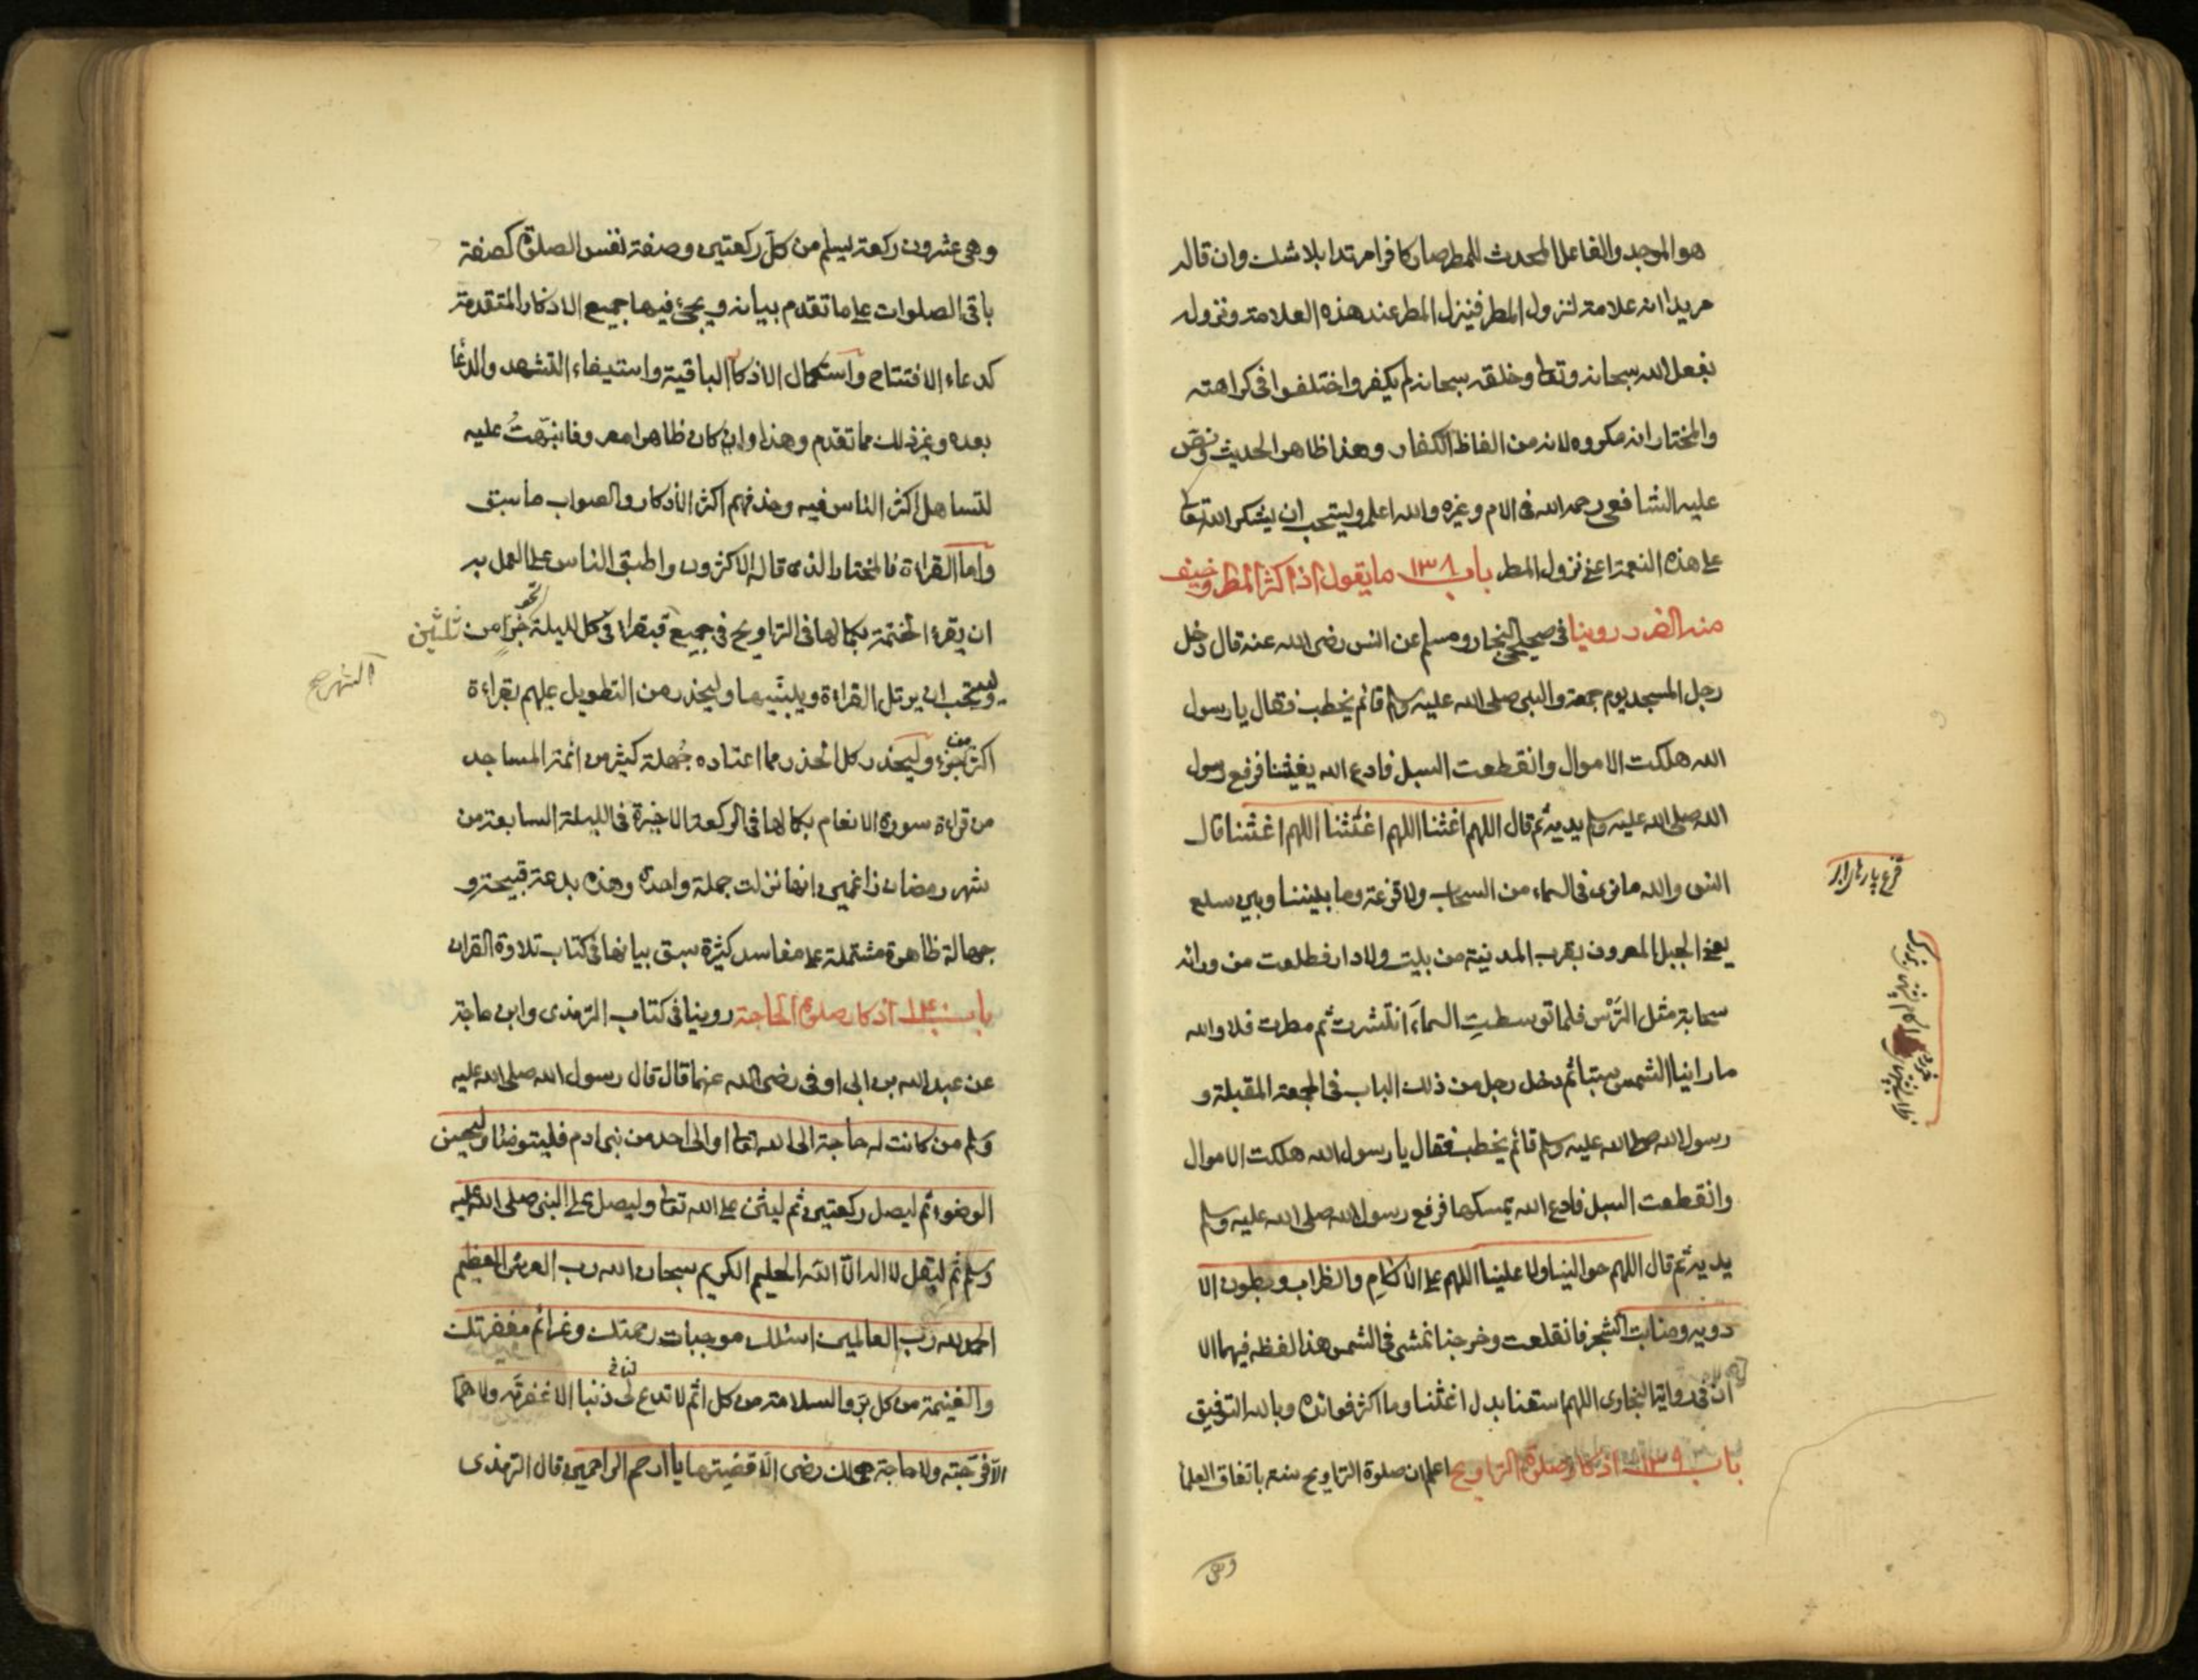 هو الموجد والفاعل المحدث للمطر صار كافرا مرتدا بلا شك وان قاله
مريدا انه علامة لنزول المطر فينزل المطر عند هذه العلامة ونزوله
بفعل الله سبحانه وتعا وخلقه سبحانه لم يكفر واختلفوا فى كراهته
والمختار انه مكروه لانه من الفاظ الكفار وهذا ظاهر الحديث ونص
عليه الشافعى رحمه الله فى الام وغيره والله اعلم ويستحب ان يشكر الله تعا
على هذه النعمة اعنى نزول المطر باب ١٣٨ ما يقول اذا كثر المطر وخيف
منه الضرر روينا فى صحيحى البخار ومسلم عن انس رضى الله عنه قال دخل
رجل المسجد يوم جمعة والنبى صلى الله عليه وسلم قائم يخطب فقال يا رسول
الله هلكت الاموال وانقطعت السبل فادع الله يغيثنا فرفع رسول
الله صلى الله عليه وسلم يديه ثم قال اللهم اغثنا اللهم اغثنا اللهم اغثنا قال
انس والله ما نرى فى السماء من السحاب ولا قزعة وما بيننا وبين سلع
يعنى الجبل المعروف بقرب المدينة من بيت ولا دار فطلعت من ورائه
سحابة مثل الترس فلما توسطت السماء انتشرت ثم مطرت فلا والله
ما راينا الشمس سبتا ثم دخل رجل من ذلك الباب فى الجمعة المقبلة و
رسول الله صلى الله عليه وسلم قائم يخطب فقال يا رسول الله هلكت الاموال
وانقطعت السبل فادع الله يمسكها فرفع رسول الله صلى الله عليه وسلم
يديه ثم قال اللهم حوالينا ولا علينا اللهم على الاكام والظراب وبطون الا
دوية ومنابت الشجر فانقلعت وخرجنا نمشى فى الشمس هذا لفظه فيهما الا
ان فى رواية البخارى اللهم اسقنا بدل اغثنا وما اكثر فوائده وبالله التوفيق
باب ١٣٩ اذكار صلوة التراويح اعلم ان صلوة التراويح سنة باتفاق العلما
وهى
وهى عشرون ركعة يسلم من كل ركعتين وصفة نفس الصلوة كصفة
باقى الصلوات على ما تقدم بيانه ويجئ فيها جميع الاذكار المتقدمة
كدعاء الافتتاح واستكمال الاذكار الباقية واستيفاء التشهد والدعا
بعده وغير ذلك مما تقدم وهذا وان كان ظاهرا معروفا نبهت عليه
لتساهل اكثر الناس فيه وحذفهم اكثر الاذكار والصواب ما سبق
واما القراءة فالمختار الذى قاله الاكثرون واطبق الناس على العمل به
ان يقرء الختمة بكمالها فى التراويح فى جميع فيقرا فى كل ليلة نحو جزء من ثلثين
الشهر صح
ويستحب ان يرتل القراءة ويبينها وليحذر من التطويل عليهم بقراءة
اكثر من جزء وليحذر كل الحذر مما اعتاده جهلة كثير من ائمة المساجد
من قراءة سورة الانعام بكمالها فى الركعة الاخيرة فى الليلة السابعة من
شهر رمضان زاعمين انها نزلت جملة واحدة وهذه بدعة قبيحة و
جهالة ظاهرة مشتملة على مفاسد كثيرة سبق بيانها فى كتاب تلاوة القران
باب ١٤٠ اذكار صلوة الحاجة روينا فى كتاب الترمذى وابن ماجة
عن عبد الله بن ابى اوفى رضى الله عنهما قال قال رسول الله صلى الله عليه
وسلم من كانت له حاجة الى الله تعا او الى احد من بنى ادم فليتوضا وليحسن
الوضوء ثم ليصل ركعتين ثم ليثن على الله تعا وليصل على النبى صلى الله عليه
وسلم ثم ليقل لا اله الا الله الحليم الكريم سبحان الله رب العرش العظيم
الحمد لله رب العالمين اسئلك موجبات رحمتك وعزائم مغفرتك
والغنيمة من كل بر والسلامة من كل اثم لا تدع لى ذنبا الا غفرته ولا هما
الا فرجته ولا حاجة هى لك رضى الا قضيتها يا ارحم الراحمين قال الترمذى